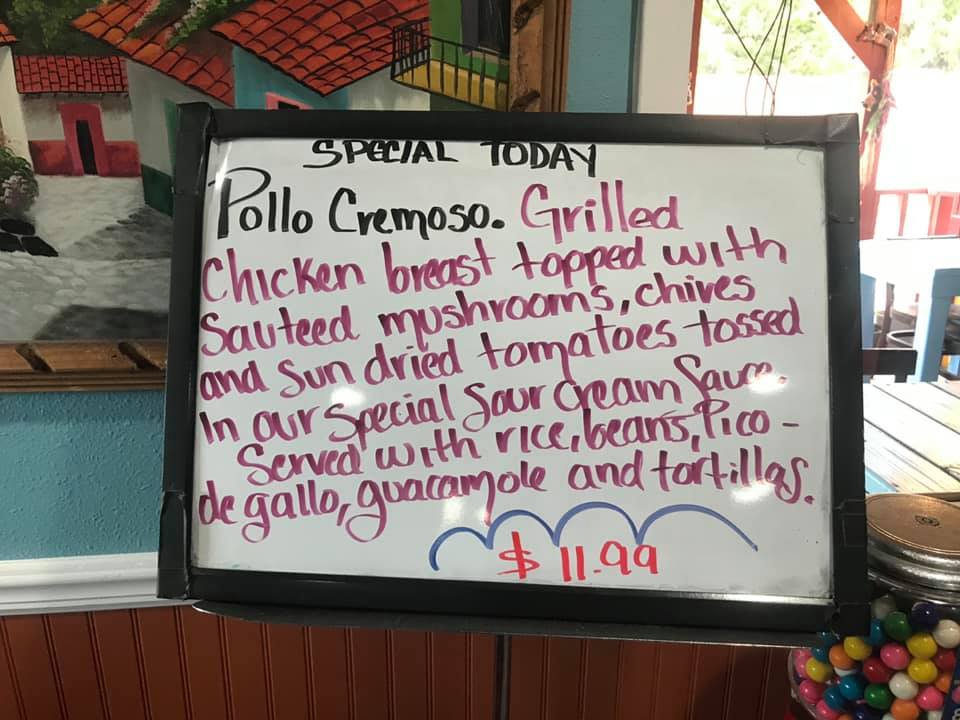 SPECIAL TODAY
Pollo Cremoso. Grilled
Chicken breast topped with
Sauteed mushrooms, chives
and Sun dried tomatoes tossed
In our Special Sour Cream Sauce.
Served with rice, beans, Pico -
de gallo, guacamole and tortillas.
$ 11.99